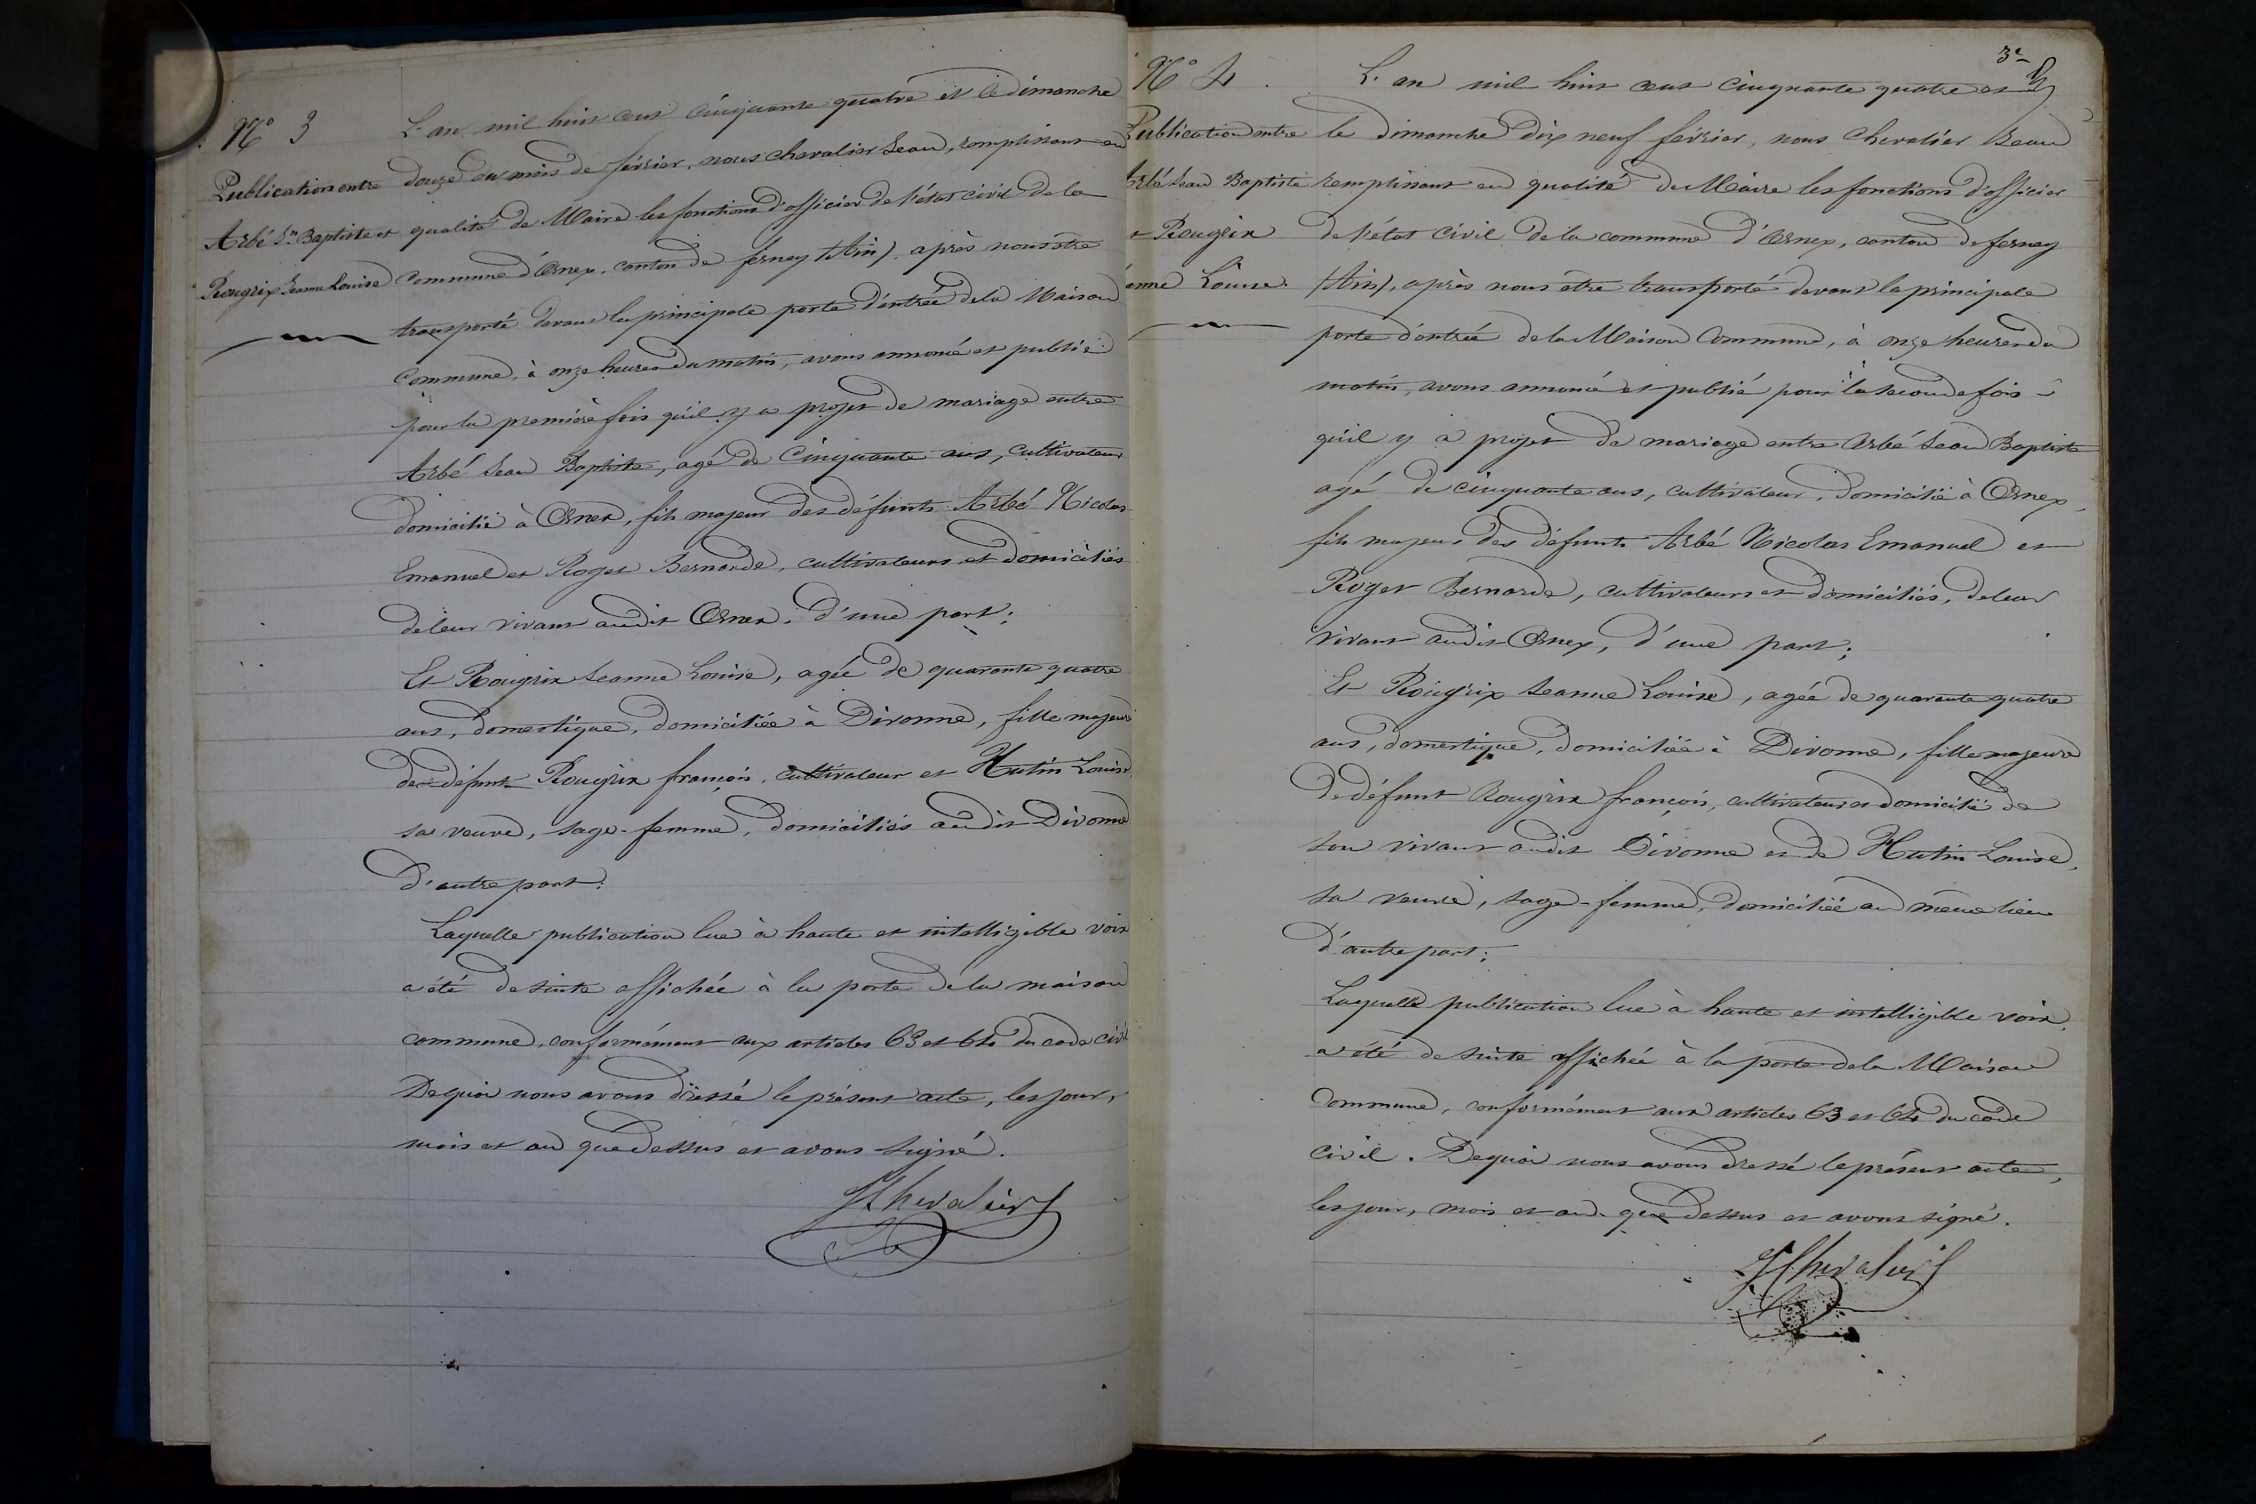 N° 3
Publication entre
Arbé Jn Baptiste et
Rougrix Jeanne Louise
L'an mil huit cent cinquante quatre et le dimanche
douze du mois de février, nous chevalier Jean, remplissant en
qualité de Maire les fonctions d'officier de l'état civil de la
commune d'Ornex, canton de ferney (Ain), après nous être
transporté devant la principale porte d'entrée de la Maison
commune, à onze heures du matin, avons annoncé et publié
pour la première fois qu'il y a projet de mariage entre
Arbé Jean Baptiste, agé de Cinquante ans, cultivateur
domicilié à Ornex, fils majeur des défunts Arbé Nicolas
Emanuel et Roget Bernarde, cultivateurs et domiciliés
de leur vivant audit Ornex, d'une part;
Et Rougrix Jeanne Louise, agée de quarante quatre
ans, domestique, domiciliée à Divonne, fille majeure
de défunt Rougrix françois, cultivateur et Hutin Louise
sa veuve, sage-femme, domiciliés audit Divonne
d'autre part:
Laquelle publication lue à haute et intelligible voix
a été de suite affichée à la porte de la maison
commune, conformément aux articles 63 et 64 du code civil
De quoi nous avons dressé le présent acte, les jour,
mois et an que dessus et avons signé.
JChevalier
3e
N° 4.
Publication entre
Arbé Jean Baptiste
et Rougrix
Jeanne Louise.
L'an mil huit cent cinquante quatre et
le dimanche dix neuf février, nous chevalier Jean
remplissant en qualité de Maire les fonctions d'officier
de l'état civil de la commune d'Ornex, canton de ferney
(Ain), après nous être transporté devant la principale
porte d'entrée de la Maison Commune, à onze heures du
matin, avons annoncé et publié pour la seconde fois
qu'il y a projet de mariage entre Arbé Jean Baptiste
agé de cinquante ans, cultivateur, domicilié à Ornex,
fils majeur des défunts Arbé Nicolas Emanuel et
Roget Bernarde, cultivateurs et domiciliés, de leur
vivant audit Ornex, d'une part;
Et Rougrix Jeanne Louise, agée de quarante quatre
ans, domestique, domiciliée à Divonne, fille majeure
de défunt Rougrix françois, cultivateur et domicilié de
son vivant audit Divonne et de Hutin Louise,
sa veuve, sage-femme, domiciliée au même lieu
d'autre part;
Laquelle publication lue à haute et intelligible voix,
a été de suite affichée à la porte de la Maison
Commune, conformément aux articles 63 et 64 du code
civil. De quoi nous avons dressé le présent acte,
les jour, mois et an que dessus et avons signé.
JChevalier